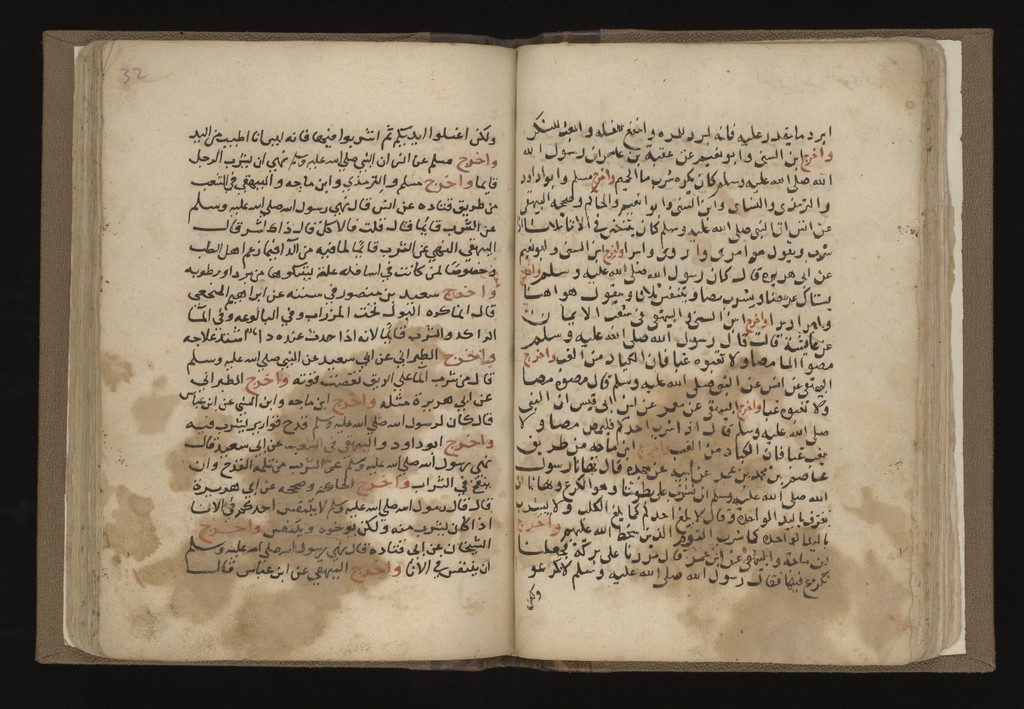 ابرد ما يقدر عليه فانه ابرد للمره وانفع للغله وابعث للشكر
واخرج ابن السني وابو نعيم عن عقبة بن عامر ان رسول الله
الله صلى الله عليه وسلم كان يكره شرب ما الحميم واخرج مسلم وابو داود
والترمذي والنساى وابن السني وابو نعيم والحاكم وصححه البيهقي
عن انس ان النبي صلى الله عليه وسلم كان يتنفس في الانا ثلاثا اذا
شرب ويقول هو امرى واروى وابرا واخرج ابن السني وابو نعيم
عن ابي هريره قال كان رسول الله صلى الله عليه وسلم واخرج
يستاك عرضا ويشرب مصا ويتنفس ثلاثا ويقول هو اهنا
وامرا وابرا واخرج ابن السني والبيهقي في شعب الايمان
عن عائشة قالت قال رسول الله صلى الله عليه وسلم
مصوا الما مصا ولا تعبوه عبا فان الكباد من العب واخرج
البيهقي عن انس عن النبي صلى الله عليه وسلم قال مصوه مصا
ولا تعبوه عبا واخرج البيهقي عن معمر عن ابن ابي ان النبي
صلى الله عليه وسلم قال اذا شرب احدكم فليمص مصا ولا
يعب عبا فان الكباد من العب واخرج ابن ماجه من طريق
عاصم بن محمد بن عن ابيه عن جده قال نهانا رسول
الله صلى الله عليه وسلم ان نشرب على بطوننا وهو الكرع ونهانا ان
نغترف باليد الواحدة وقال لا يلغ احدكم كما يلغ الكلب ولا يشرب
باليد الواحدة كما يشرب القوم الذين سخط الله عليهم واخرج
ابن ماجة والبيهقي عن ابن عمر قال مررنا على بركة فجعلنا
نكرع فيها فقال رسول الله صلى الله عليه وسلم لا تكرعو
ولكن
32
ولكن اغسلوا ايديكم ثم اشربوا فيها فانه ليس انا اطيب من اليد
واخرج مسلم عن انس ان النبي صلى الله عليه وسلم نهى ان يشرب الرجل
قايما واخرج مسلم والترمذي وابن ماجه والبيهقي في الشعب
من طريق قتاده عن انس قال نهى رسول الله صلى الله عليه وسلم
عن الشرب قائما قال قلت فالاكل قال ذاك اشر قال
البيهقي النهي عن الشرب قائما لما فيه من الدا فيما زعم اهل الطب
وخصوصا لمن كانت في اسافله علة يشكوها من برد او رطوبه
واخرج سعيد بن منصور في سننه عن ابراهيم النخعي
قال انما كره البول تحت الميزراب وفي البالوعه وفي الما
الراكد والشرب قائما لانه اذا حدث عنده دا اشتد علاجه
واخرج الطبراني عن ابي سعيد عن النبي صلى الله عليه وسلم
قال من شرب الما على الريق نقصت قوته واخرج الطبراني
عن ابي هريرة مثله واخرج ابن ماجه وابن السني عن ابن عباس
قال كان لرسول الله صلى الله عليه وسلم قدح قوارير يشرب فيه
واخرج ابو داود والبيهقي في الشعب عن ابي سعيد قال
نهى رسول الله صلى الله عليه وسلم عن الشرب من ثلمة القدح وان
ينفخ في الشراب واخرج الحاكم وصححه عن ابي هريرة
قال قال رسول الله صلى الله عليه وسلم لا يتنفس احدكم في الانا
اذا كان يشرب منه ولكن يوخره ويتنفس واخرج
الشيخان عن ابي قتاده قال نهى رسول الله صلى الله عليه وسلم
ان يتنفس في الانا واخرج البيهقي عن ابن عباس قال